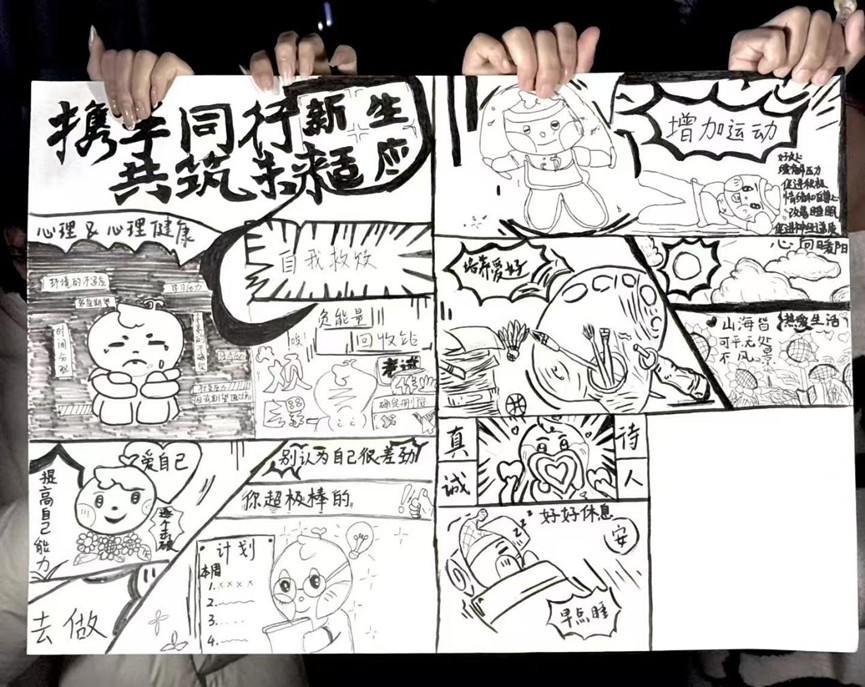 携手同行
共筑未来
新生
适应
心理&心理健康
环境的不适应
学习压力
家庭期望
时间分配
自我救效
负能量
回收站
烦
考试
88
确定删除
爱自己
提高自己能力
逐个击破
别认为自己很差劲
你超极棒的
计划
本周
1.××××
2.
3.
4.
去做
增加运动
好处
缓解压力
促进积极
情绪和自尊心
改善睡眠
促进神经递质
心向暖阳
培养爱好
热爱生活
山海皆
可平无处
不风景
真诚
待人
好好休息
安
早点睡